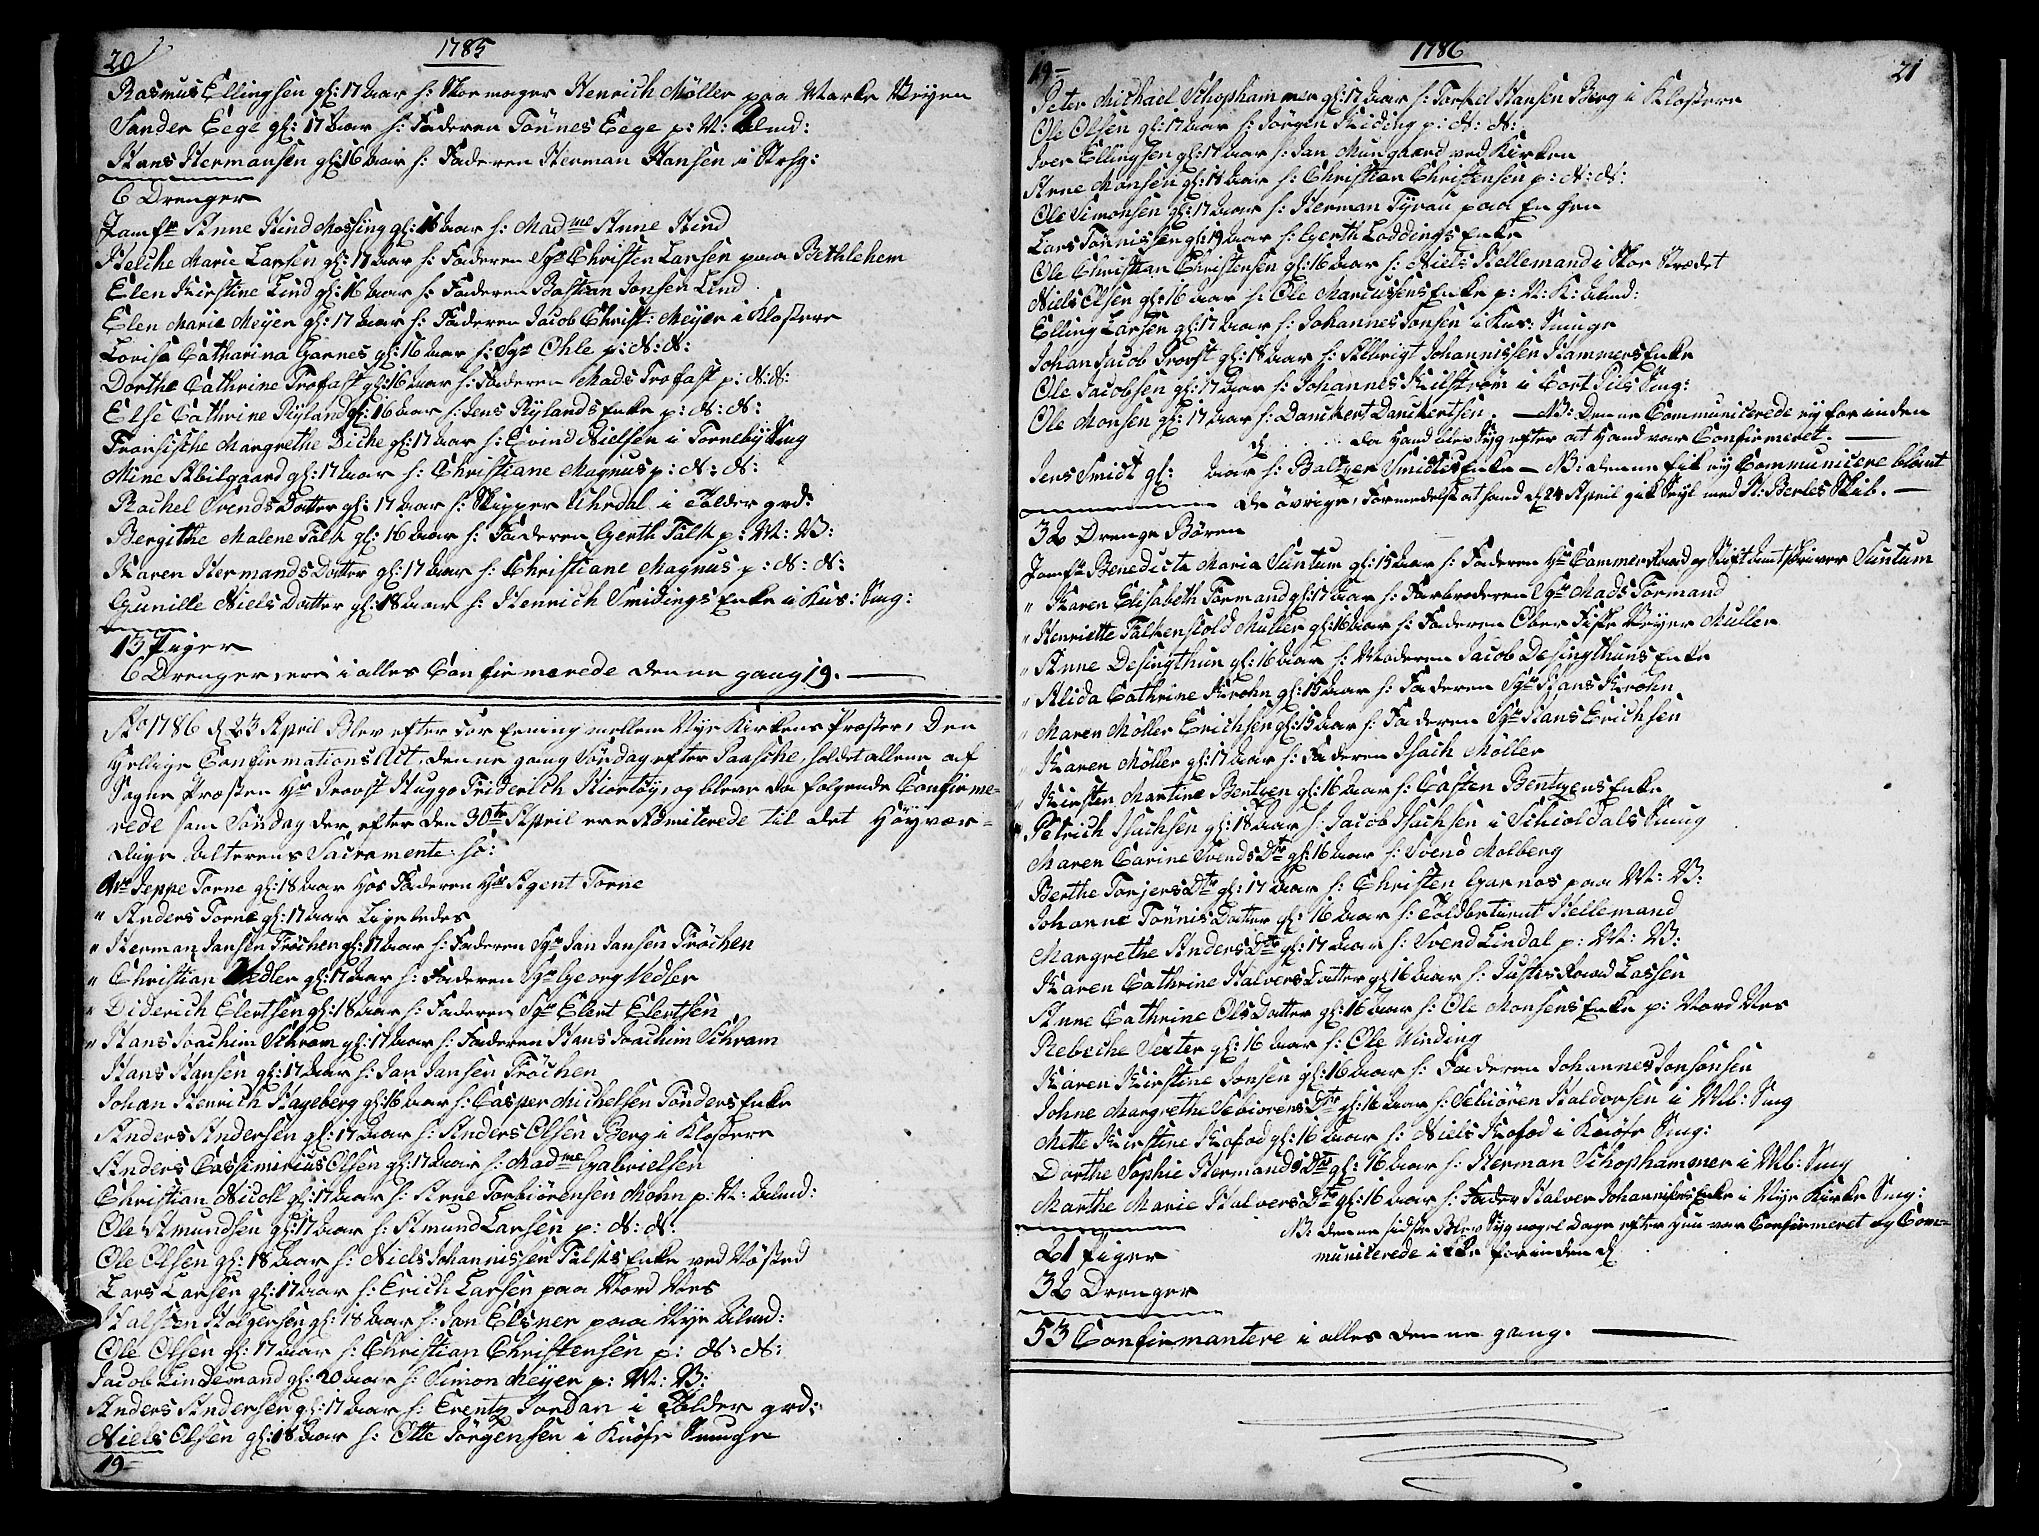 20
1785
Rasmus Ellingsen gl: 17 aar h: Skomager Henrich Møller paa Marke Veyen
Sander Eege gl: 17 aar h: Faderen Tönnes Eege p: N: Almd:
Hans Hermansen gl: 16 aar h: Faderen Herman Hansen i Strg:
6 Drenger
Jomfr Anne Hind Mossing gl: 16 aar h: Madme Anne Hind
Helche Marie Larsen gl: 17 aar h: Faderen Sgr Christen Larsen paa Bethlehem
Elen Kirstine Lind gl: 16 aar h: Faderen Bastian Jonsen Lind
Elen Marie Meyer gl: 17 aar h: Faderen Jacob Christ: Meyer i Klostere
Lovisa Catharina Garnes gl: 16 aar h: Sgr Ohle p: N: N:
Dorthe Cathrine Trofast gl: 16 aar h: Faderen Mads Trofast p: N: N:
Else Cathrine Ryland gl: 16 aar h: Jens Rylands Enke p: N: N:
Fransische Margrethe Diche gl: 17 aar h: Evind Nielsen i Torneby Smg
Mine Abilgaard gl: 17 aar h: Christiane Magnus p: N: N:
Rachel Svends Datter gl: 17 aar h: Skipper Uhrdal i Tolder grd:
Bergithe Malene Falk gl: 16 aar h: Faderen Gerth Falk p: M: B:
Karen Hermands Datter gl: 17 aar h: Christiane Magnus p: N: N:
Gunille Niels Datter gl: 18 aar h: Henrich Smidings Enke i Kus: Smg:
13 Piger
6 Drenger, ere i alles Confirmerede denne gang 19.
Ao 1786 d 23 April Blev efter for Eening mellem Nye Kirkens Præster, Den
Hellige Confirmations Act, denne gang Söndag efter Paasche, holdet allene af
Sogne Præsten Hr Provst Huggo Friderich Hiortöy, og bleve da folgende Confirme-
rede som Söndag der efter den 30te April ere Admiterede til det Höyvær-
dige Alterens Sacramente. h:
Mr Jeppe Torne gl: 18 aar Hos Faderen Hr Agent Torne
" Anders Torne gl: 17 aar Ligeledes
" Herman Jansen Fröchen gl: 17 aar h: Faderen Sgr Jan Jansen Fröchen
" Christian Vedler gl: 17 aar h: Faderen Sgr Georg Vedler
" Diderich Elertsen gl: 18 aar h: Faderen Sgr Elert Elertsen
" Hans Joachim Schram gl: 17 aar h: Faderen Hans Joachim Schram
Hans Hansen gl: 17 aar h: Jan Jansen Fröchen
Johan Henrich Hageberg gl: 16 aar h: Casper Michelsen Tönders Enke
Anders Andersen gl: 17 aar h: Anders Olsen Berg i Klostere
Anders Cassimirius Olsen gl: 17 aar h: Madme Gabrielsen
Christian Nicolt gl: 17 aar h: Arne Torbiörensen Mohn p: N: Almd:
Ole Amundsen gl: 17 aar h: Amund Larsen p: N: N:
Ole Olsen gl: 18 aar h: Niels Johannissen Falks Enke ved Nösted
Lars Larsen gl: 17 aar h: Erich Larsen paa Nord Nes
Halsten Holgersen gl: 18 aar h: Jan Elsner paa Nye Almd:
Ole Olsen gl: 17 aar h: Christian Christensen p: N: N:
Jacob Lindemand gl: 20 aar h: Simon Meyer p: M: B:
Anders Andersen gl: 17 aar h: Erentz Jordan i Tolder grd:
Niels Olsen gl: 18 aar h: Otte Jörgensen i Knöse Smuge
19
1786
21
19
Peter Michael Schophammer gl: 17 aar h: Torkel Hansen Berg i Klostere
Ole Olsen gl: 17 aar h: Jörgen Kiding p: N: N:
Iver Ellingsen gl: 17 aar h: Jan Mungaard ved Kirken
Arne Monsen gl: 18 aar h: Christian Christensen p: N: N:
Ole Simonsen gl: 17 aar h: Herman Tyrau paa Engen
Lars Tönnissen gl: 19 aar h: Gerth Loddings Enke
Ole Christian Christensen gl: 16 aar h: Niels Hellemand i Skor Strædet
Niels Olsen gl: 16 aar h: Ole Marcussens Enke p: N: K: Almd:
Elling Larsen gl: 17 aar h: Johannes Jonsen i Kus: Smuge
Johan Jacob Provst gl: 18 aar h: Allerigt Johannissen Hammers Enke
Ole Jacobsen gl: 17 aar h: Johannes Kilström i Cort Piis Smg:
Ole Monsen gl: 17 aar h: Danckert Danckertsen. — NB: Denne Communicerede ey forinden
d . . . . . da Hand blev Syg efter at Hand var Confirmeret.
Jens Smidt gl: aar h: Baltzer Smidts Enke — NB: denne fik ey Communicere blant
de övrige, formedelst at hand d 24 April gik Seyl med H: Berles Skib. —
32 Drenge Bören
Jomfr Benedicte Maria Suntum gl: 15 aar h: Faderen Hr Cammer Raad og Stift Amtskriver Suntum
" Karen Elisabeth Formand gl: 17 aar h: Farbroderen Sgr Mads Formand
" Henriette Falkenskold Muller gl: 16 aar h: Faderen Ober Fiske Veyer Muller
" Anne Desingthun gl: 16 aar h: Moderen Jacob Desingthuns Enke
" Alida Cathrine Krohn gl: 15 aar h: Faderen Sgr Hans Krohn
" Maren Möller Erichsen gl: 15 aar h: Faderen Sgr Hans Erichsen
" Karen Möller gl: 17 aar h: Faderen Isach Möller
" Kirsten Martine Bentzen gl: 16 aar h: Casten Bentzens Enke
" Petrich Isachsen gl: 18 aar h: Jacob Isachsen i Schioldals Smug
Maren Carine Svends Dtr gl: 16 aar h: Svend Molberg
Berthe Torjers Dtr gl: 17 aar h: Christen Garnas paa M: B:
Johanne Tönnis Datter gl: 16 aar h: Toldbetient Hellemand
Margrethe Anders Dtr gl: 17 aar h: Svend Lindal p: M: B:
Karen Cathrine Halvers Datter gl: 16 aar h: Justis Raad Lassen
Anne Cathrine Ols Datter gl: 16 aar h: Ole Monsens Enke p: Nord Nes
Rebeche Sexter gl: 16 aar h: Ole Winding
Karen Kirstine Jonsen gl: 16 aar h: Faderen Johannes Jonsonsen
Johne Margrethe Sebiorens Dtr gl: 16 aar h: Sebiören Haldorsen i Mb: Smg
Mette Kirstine Kofod gl: 16 aar h: Niels Kofod i Knöse Smug:
Dorthe Sophie Hermands Dtr gl: 16 aar h: Herman Schophammer i Mb: Smg
Marthe Marie Halvers Dtr gl: 16 aar h: Fader Halver Johannisens Enke i Nye Kirke Smg:
NB: denne sidste Blev Syg nogel Dage efter hun var Confirmeret og Com-
municerede ikke forinden d
21 Piger
32 Drenger
53 Confirmantere i alles denne gang.